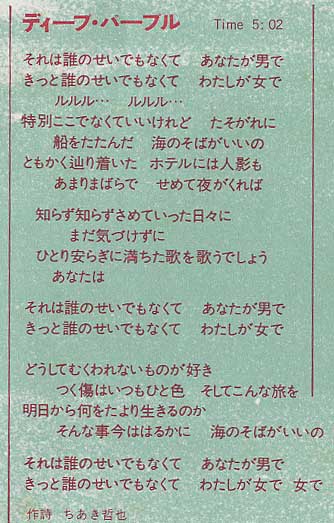 ディープ・パープル Time 5:02
それは誰のせいでもなくて あなたが男で
きっと誰のせいでもなくて わたしが女で
ルルル… ルルル…
特別ここでなくていいけれど たそがれに
船をたたんだ 海のそばがいいの
ともかく辿り着いた ホテルには人影も
あまりまばらで せめて夜がくれば
知らず知らずさめていった日々に
まだ気づけずに
ひとり安らぎに満ちた歌を歌うでしょう
あなたは
それは誰のせいでもなくて あなたが男で
きっと誰のせいでもなくて わたしが女で
どうしてむくわれないものが好き
つく傷はいつもひと色 そしてこんな旅を
明日から何をたより生きるのか
そんな事今ははるかに 海のそばがいいの
それは誰のせいでもなくて あなたが男で
きっと誰のせいでもなくて わたしが女で 女で
作詩 ちあき哲也